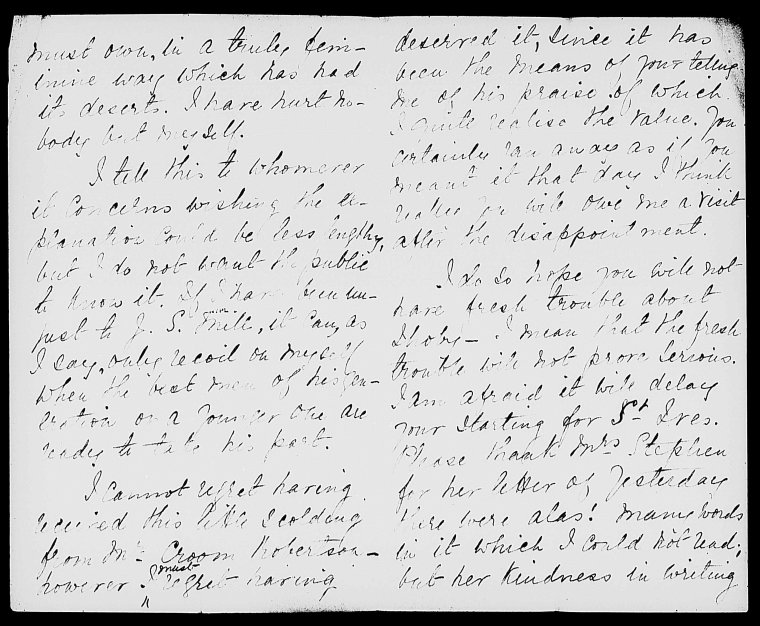 must own, in a truly fem-
inine way which has had
its deserts. I have hurt no-
body but myself.
I tell this to whomever
it concerns wishing the ex-
planation could be less lengthy,
but I do not want the public
to know it. If I have been un-
just to J. S. Mill, it can, as
I say, only recoil on myself
when the best men of his gen-
eration or a younger one are
ready to take his part.
I cannot regret having
received this little scolding
from Mr. Croom Robertson –
however I must regret having
deserved it, since it has
been the means of your telling
me of his praise of which
I quite realise the value. You
certainly ran away as if you
meant it that day. I think
rather you will owe me a visit
after the disappointment.
I do so hope you will not
have fresh trouble about
– I mean that the fresh
trouble will not prove serious.
I am afraid it will delay
your starting for St. Ives.
Please thank Mrs Stephen
for her letter of yesterday
there were alas! many words
in it which I could not read;
but her kindness in writing